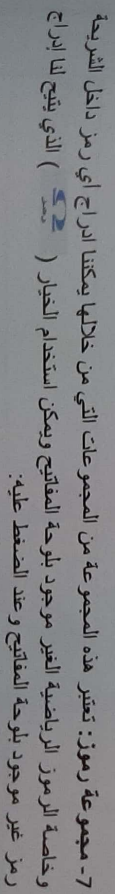 7- مجموعة رموز: تعتبر هذه المجموعة من المجموعات التي من خلالها يمكننا ادراج أي رمز داخل الشريحة
وخاصة الرموز الرياضية الغير موجود بلوحة المفاتيح ويمكن استخدام الخيار ( Ω رمز ) الذي يتيح لنا إدراج
رمز غير موجود بلوحة المفاتيح وعند الضغط عليه: